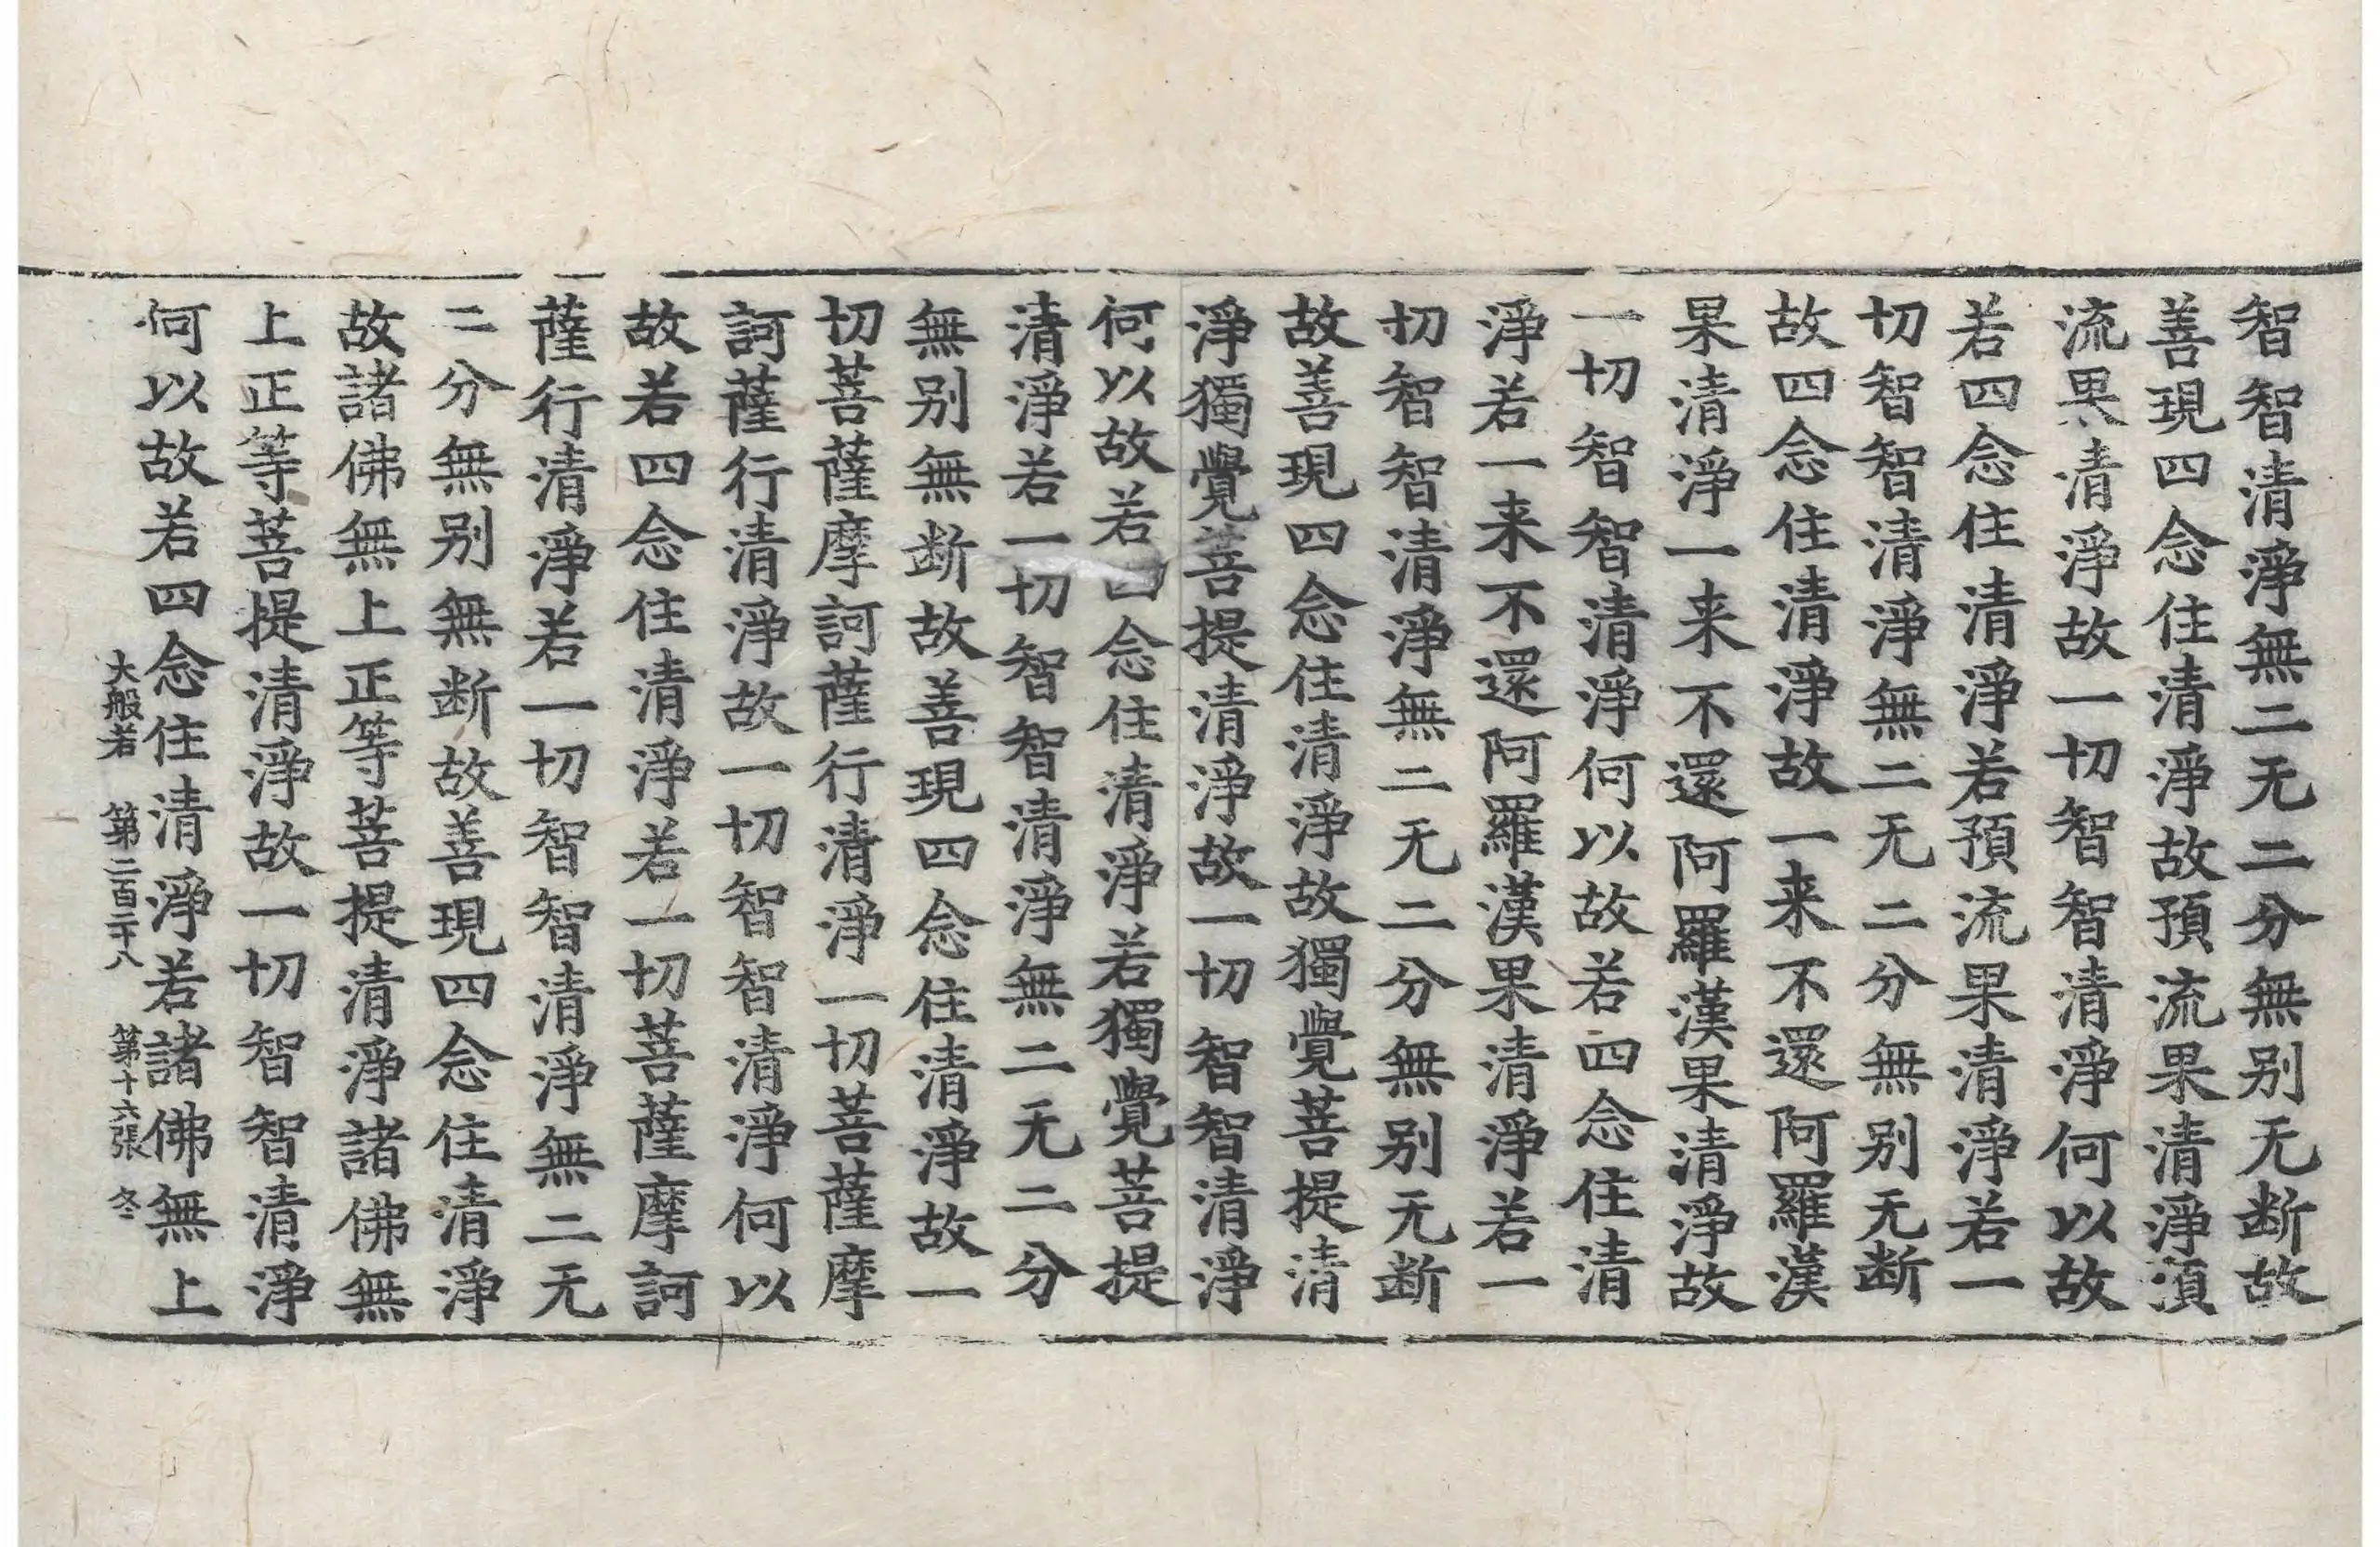 智智清淨無二无二分無别无断故
善現四念住清淨故預流果清淨預
流果清淨故一切智智清淨何以故
若四念住清淨若預流果清淨若一
切智智清淨無二无二分無别无断
故四念住清淨故一来不還阿羅漢
果清淨一来不還阿羅漢果清淨故
一切智智清淨何以故若四念住清
淨若一来不還阿羅漢果清淨若一
切智智清淨無二无二分無别无断
故善現四念住清淨故獨覺菩提清
淨獨覺菩提清淨故一切智智清淨
何以故若四念住清淨若獨覺菩提
清淨若一切智智清淨無二无二分
無别無断故善現四念住清淨故一
切菩薩摩訶薩行清淨一切菩薩摩
訶薩行清淨故一切智智清淨何以
故若四念住清淨若一切菩薩摩訶
薩行清淨若一切智智清淨無二无
二分無别無断故善現四念住清淨
故諸佛無上正等菩提清淨諸佛無
上正等菩提清淨故一切智智清淨
何以故若四念住清淨若諸佛無上
大般若 第二百二十八 第十六張 冬